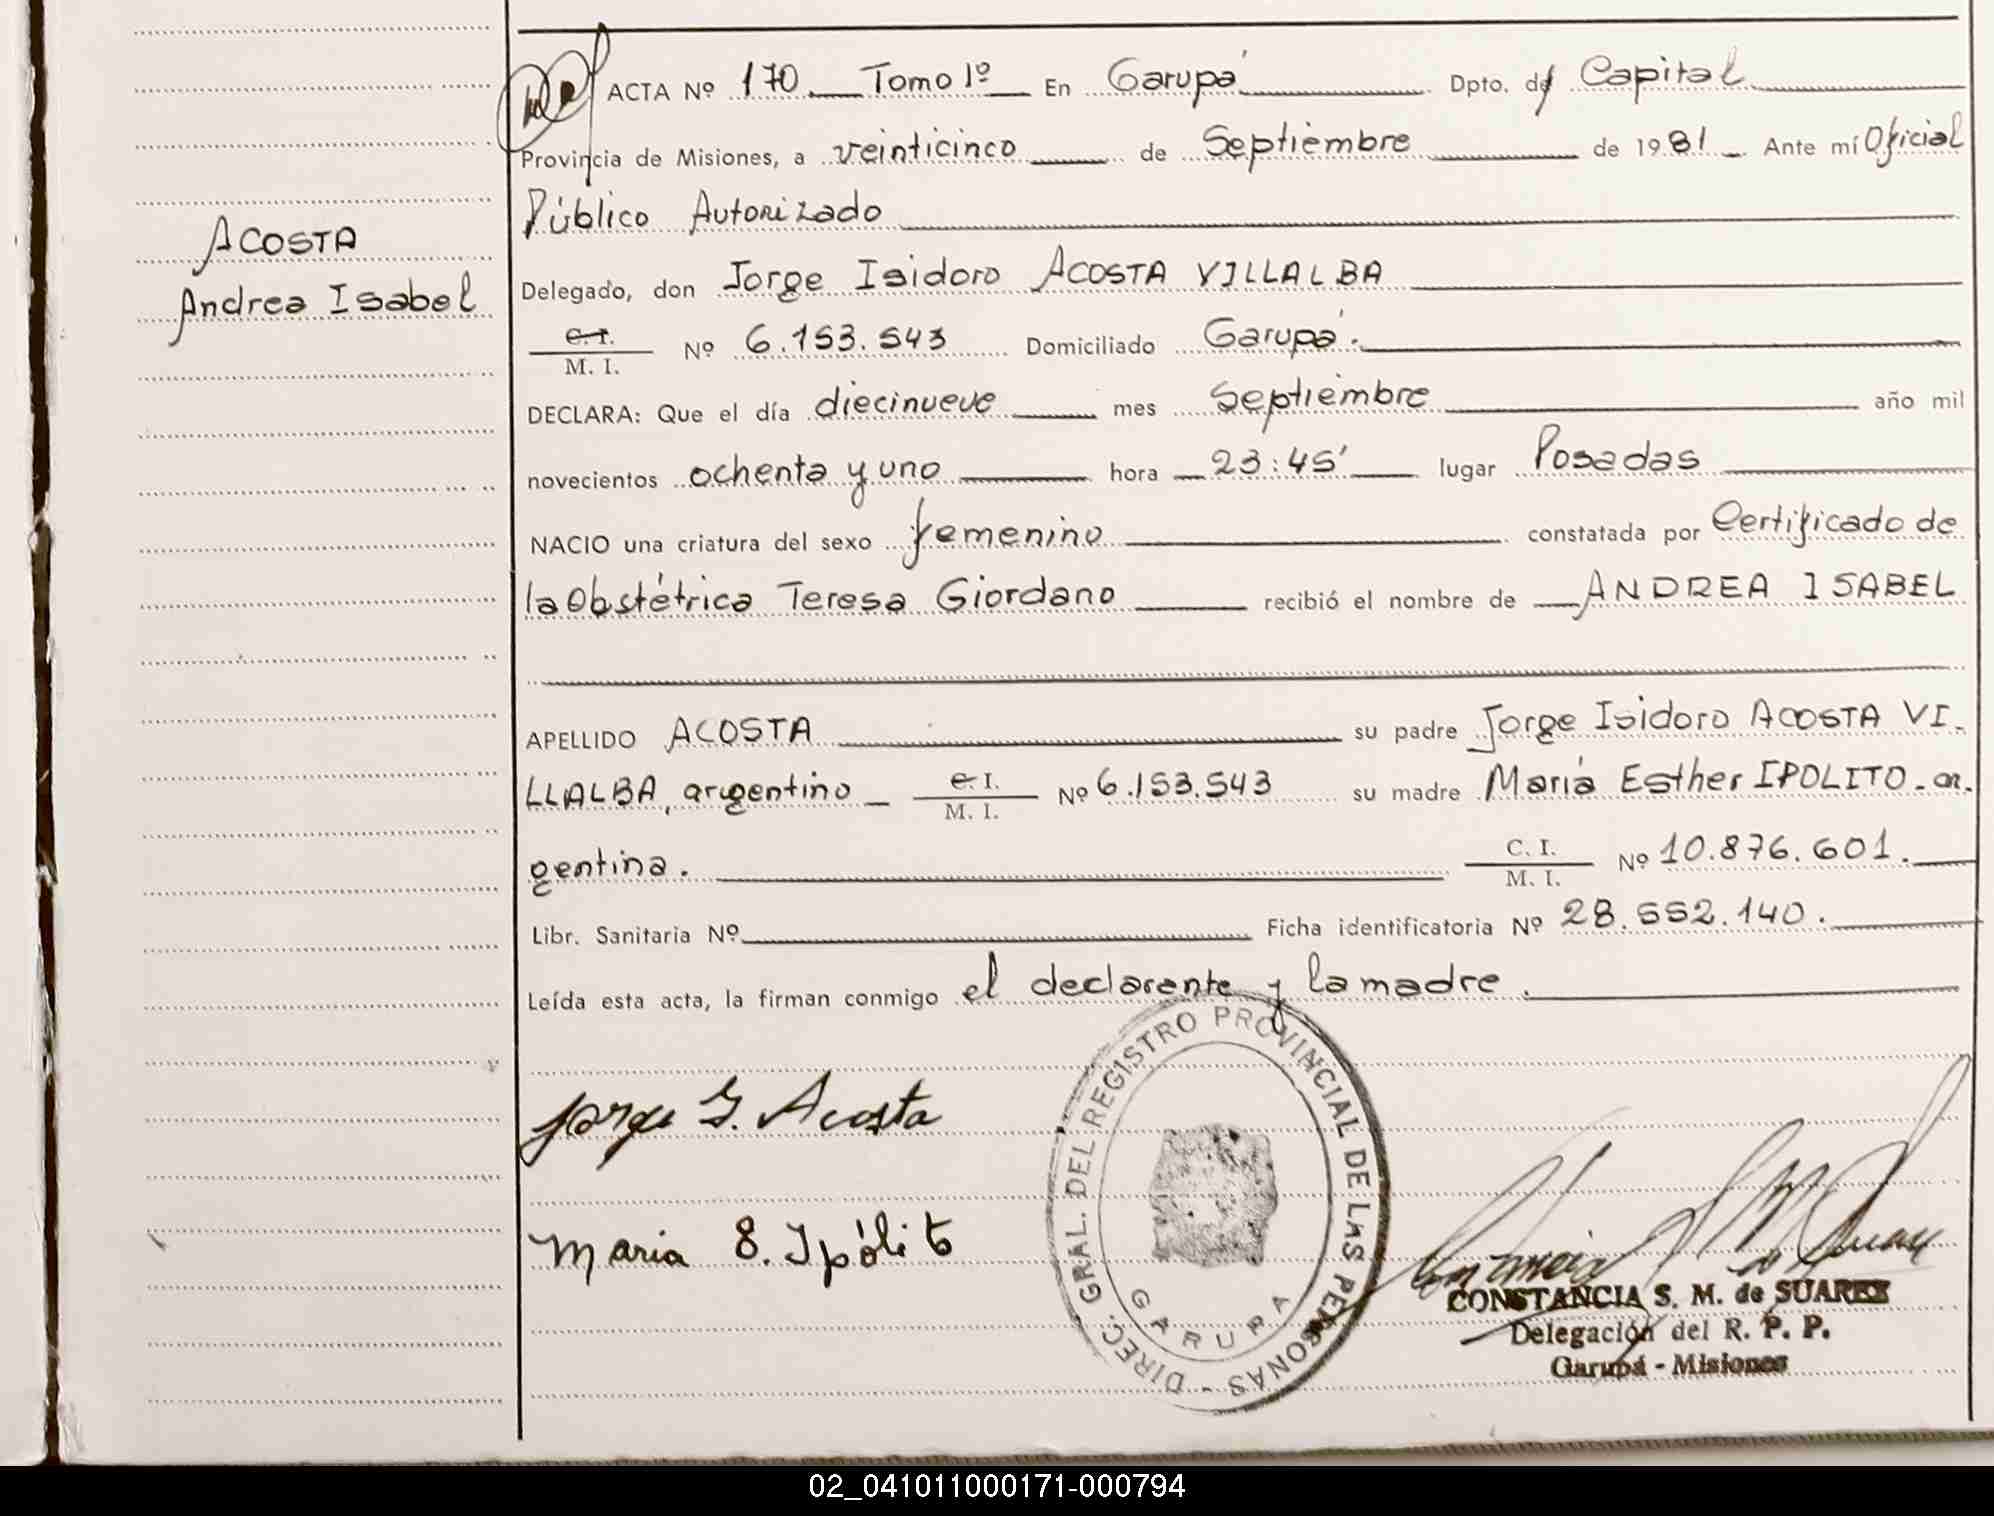 ACTA Nº 170 Tomo 1º En Garupá Dpto. de Capital
Provincia de Misiones, a veinticinco de Septiembre de 1981 Ante mí Oficial
Público Autorizado
ACOSTA
Andrea Isabel
Delegado, don Jorge Isidoro ACOSTA VILLALBA
C. I.
M. I. Nº 6.153.543 Domiciliado Garupá.
DECLARA: Que el día diecinueve mes Septiembre año mil
novecientos ochenta y uno hora 23:45' lugar Posadas
NACIO una criatura del sexo femenino constatada por Certificado de
la Obstétrica Teresa Giordano recibió el nombre de ANDREA ISABEL
APELLIDO ACOSTA su padre Jorge Isidoro ACOSTA VI-
LLALBA, argentino C. I.
M. I. Nº 6.153.543 su madre María Esther IPOLITO - ar-
gentina. C. I.
M. I. Nº 10.876.601.
Libr. Sanitaria Nº Ficha identificatoria Nº 28.552.140.
Leída esta acta, la firman conmigo el declarante y la madre.
Jorge I. Acosta
Maria E. Ipólito
DIREC. GRAL. DEL REGISTRO PROVINCIAL DE LAS PERSONAS -
GARUPA
CONSTANCIA S. M. de SUAREZ
Delegación del R. P. P.
Garupá - Misiones
02_041011000171-000794